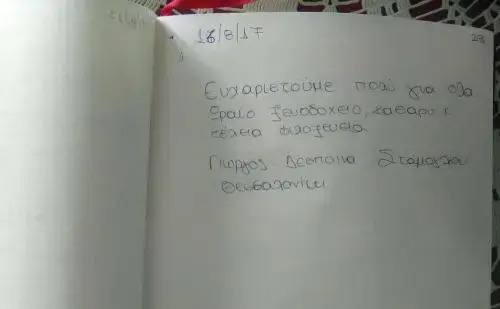 16/8/17
Ευχαριστούμε πολύ για ολα
Ωραίο ξενοδοχειο, καθαρο κ
τέλεια φιλοξενεια.
Γιωργος Δεσποινα
Θεσσαλονικη